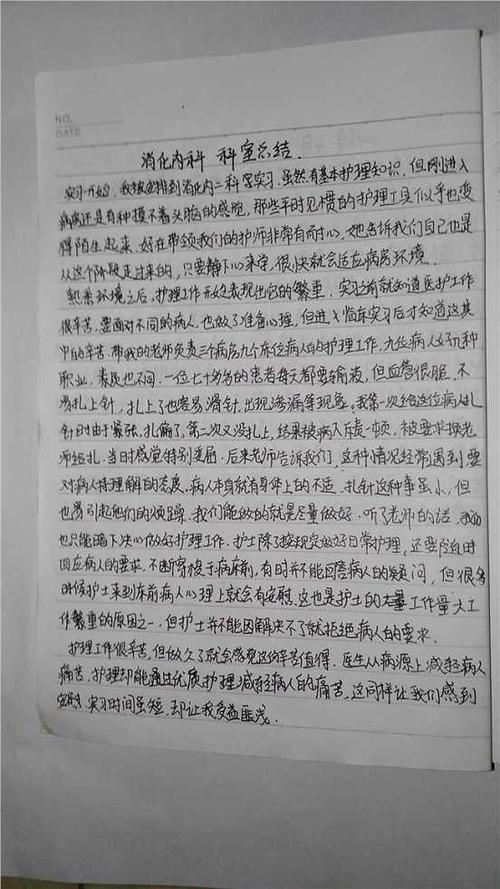 NO.
DATE
消化内科 科室总结.
实习开始，我被安排到消化内二科实习.虽然有基本护理知识，但刚进入
病房还是有种摸不着头脑的感觉，那些平时见惯的护理工具似乎也变
得陌生起来.好在带领我们的护师非常有耐心，她告诉我们自己也是
从这个阶段走过来的，只要静下心来学，很快就会适应病房环境.
熟悉环境之后，护理工作开始表现出它的繁重.实习之前就知道医护工作
很辛苦.要面对不同的病人.也做了准备心理，但进入临床实习后才知道这其
中的辛苦.带我的老师负责三个病房九个床位病人的护理工作，九位病人好几种
职业，素质也不同.一位七十多岁的患者每天都要输液，但血管很脆，不
易扎上针，扎上了也容易滑针，出现渗漏等现象.我第一次给这位病人扎
针时由于紧张，扎偏了，第二次又没扎上，结果被病人斥责一顿，被要求换老
师给扎.当时感觉特别委屈.后来老师告诉我们，这种情况经常遇到要
对病人持理解的态度，病人本身就有身体上的不适，扎针这种事虽小，但
也易引起他们的烦躁.我们能做的就是尽量做好.听了老师的话.我
也只能暗下决心做好护理工作.护士除了按规定做好日常护理，还要随时
回应病人的要求.不断穿梭于病床前，有时并不能回答病人的疑问，但很多
时候护士来到床前病人心理上就会有安慰.这也是护士的工作量大工
作繁重的原因之一，但护士并不能因解决不了就拒绝病人的要求.
护理工作很辛苦，但做久了就会感觉这份辛苦值得.医生从病源上减轻病人
痛苦，护理却能通过优质护理减轻病人的痛苦，这同样让我们感到
安慰.实习时间虽短，却让我受益匪浅.